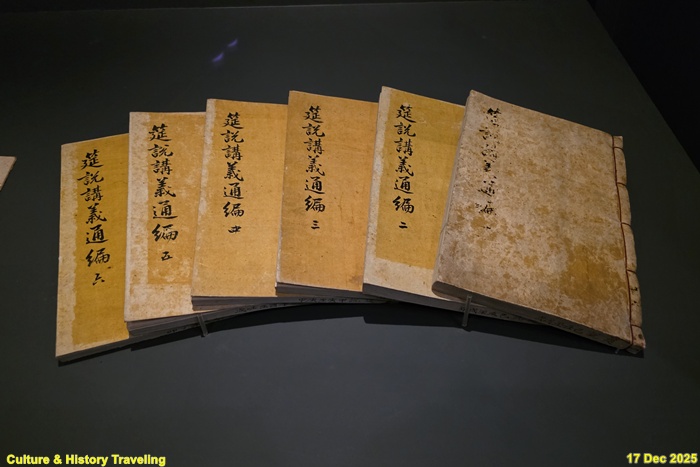 筵說講義通編 一
筵說講義通編 二
筵說講義通編 三
筵說講義通編 四
筵說講義通編 五
筵說講義通編 六
Culture & History Traveling
17 Dec 2025